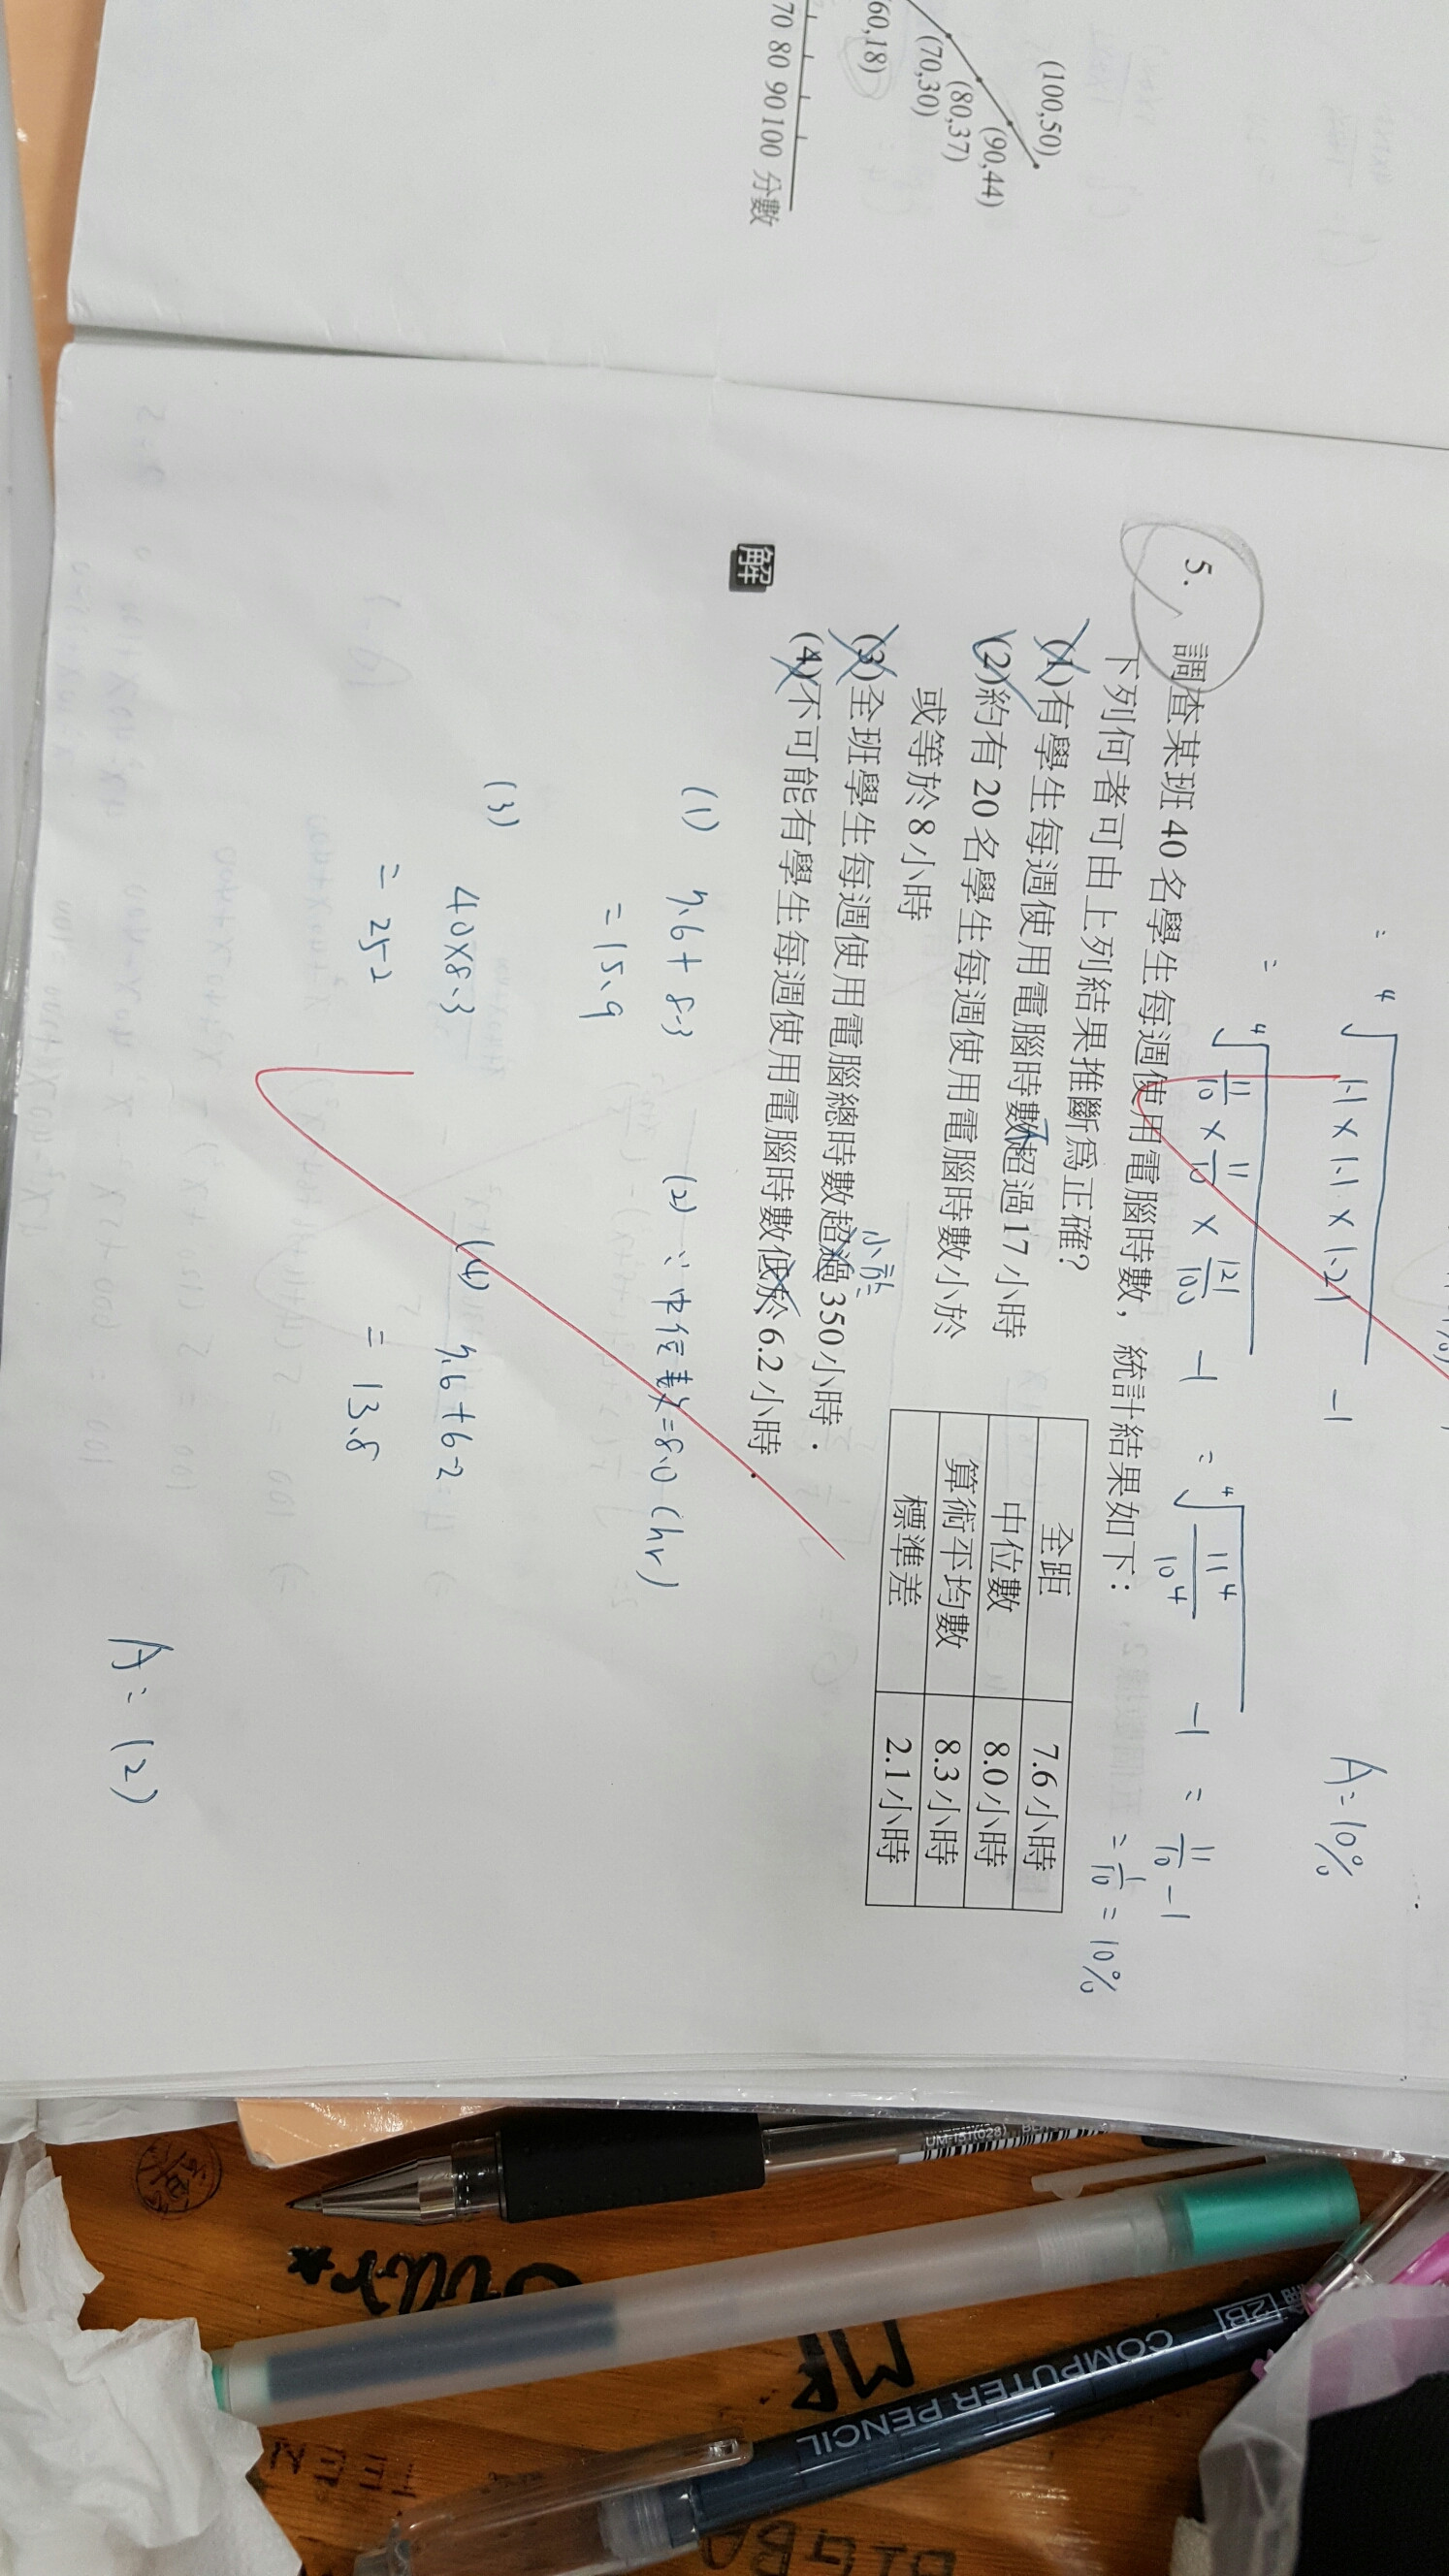 (100,50)
(90,44)
(80,37)
(70,30)
60,18)
70 80 90 100 分數
= ⁴√1.1 × 1.1 × 1.21 - 1
A = 10%
= ⁴√11/10 × 11/10 × 121/100 - 1 = ⁴√11⁴/10⁴ - 1 = 11/10 - 1
= 1/10 = 10%
5. 調查某班 40 名學生每週使用電腦時數，統計結果如下：
下列何者可由上列結果推斷為正確？
(1)有學生每週使用電腦時數超過17小時
不
(2)約有 20 名學生每週使用電腦時數小於
或等於 8 小時
(3)全班學生每週使用電腦總時數超過 350 小時．
小於
(4)不可能有學生每週使用電腦時數低於 6.2 小時．
全距 7.6 小時
中位數 8.0 小時
算術平均數 8.3 小時
標準差 2.1 小時
解
(1) 7.6 + 8.3
= 15.9
(2) ∵中位數 = 8.0 (hr)
(3)
40×8.3
= 252
(4) 7.6 + 6.2
= 13.8
A = (2)
UM-151(028)
2B
COMPUTER PENCIL
MR